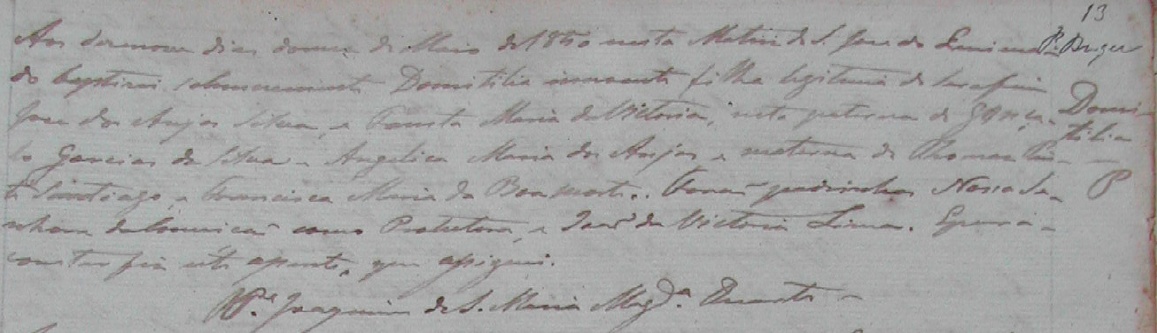 13
Aos desenove dias do mez de Maio de 1860 nesta Matriz de S. Jose do
do baptizei solemnemente Domitilia innocente filha legitima de Serafim
Jose dos Anjos Silva, e Fausta Maria da Victoria, neta paterna de Gonça-
lo Garcias da Silva e Angelica Maria dos Anjos e materna de Thomas
Santiago, e Francisca Maria da Boamorte. Forão padrinhos Nossa Se-
nhora da Conceicão como Protectora, e José da Victoria Lima. E para
constar fiz este assento, que assignei.
Joaquim de S. Maria Magd.ª Duarte
Domi-
tilia
P